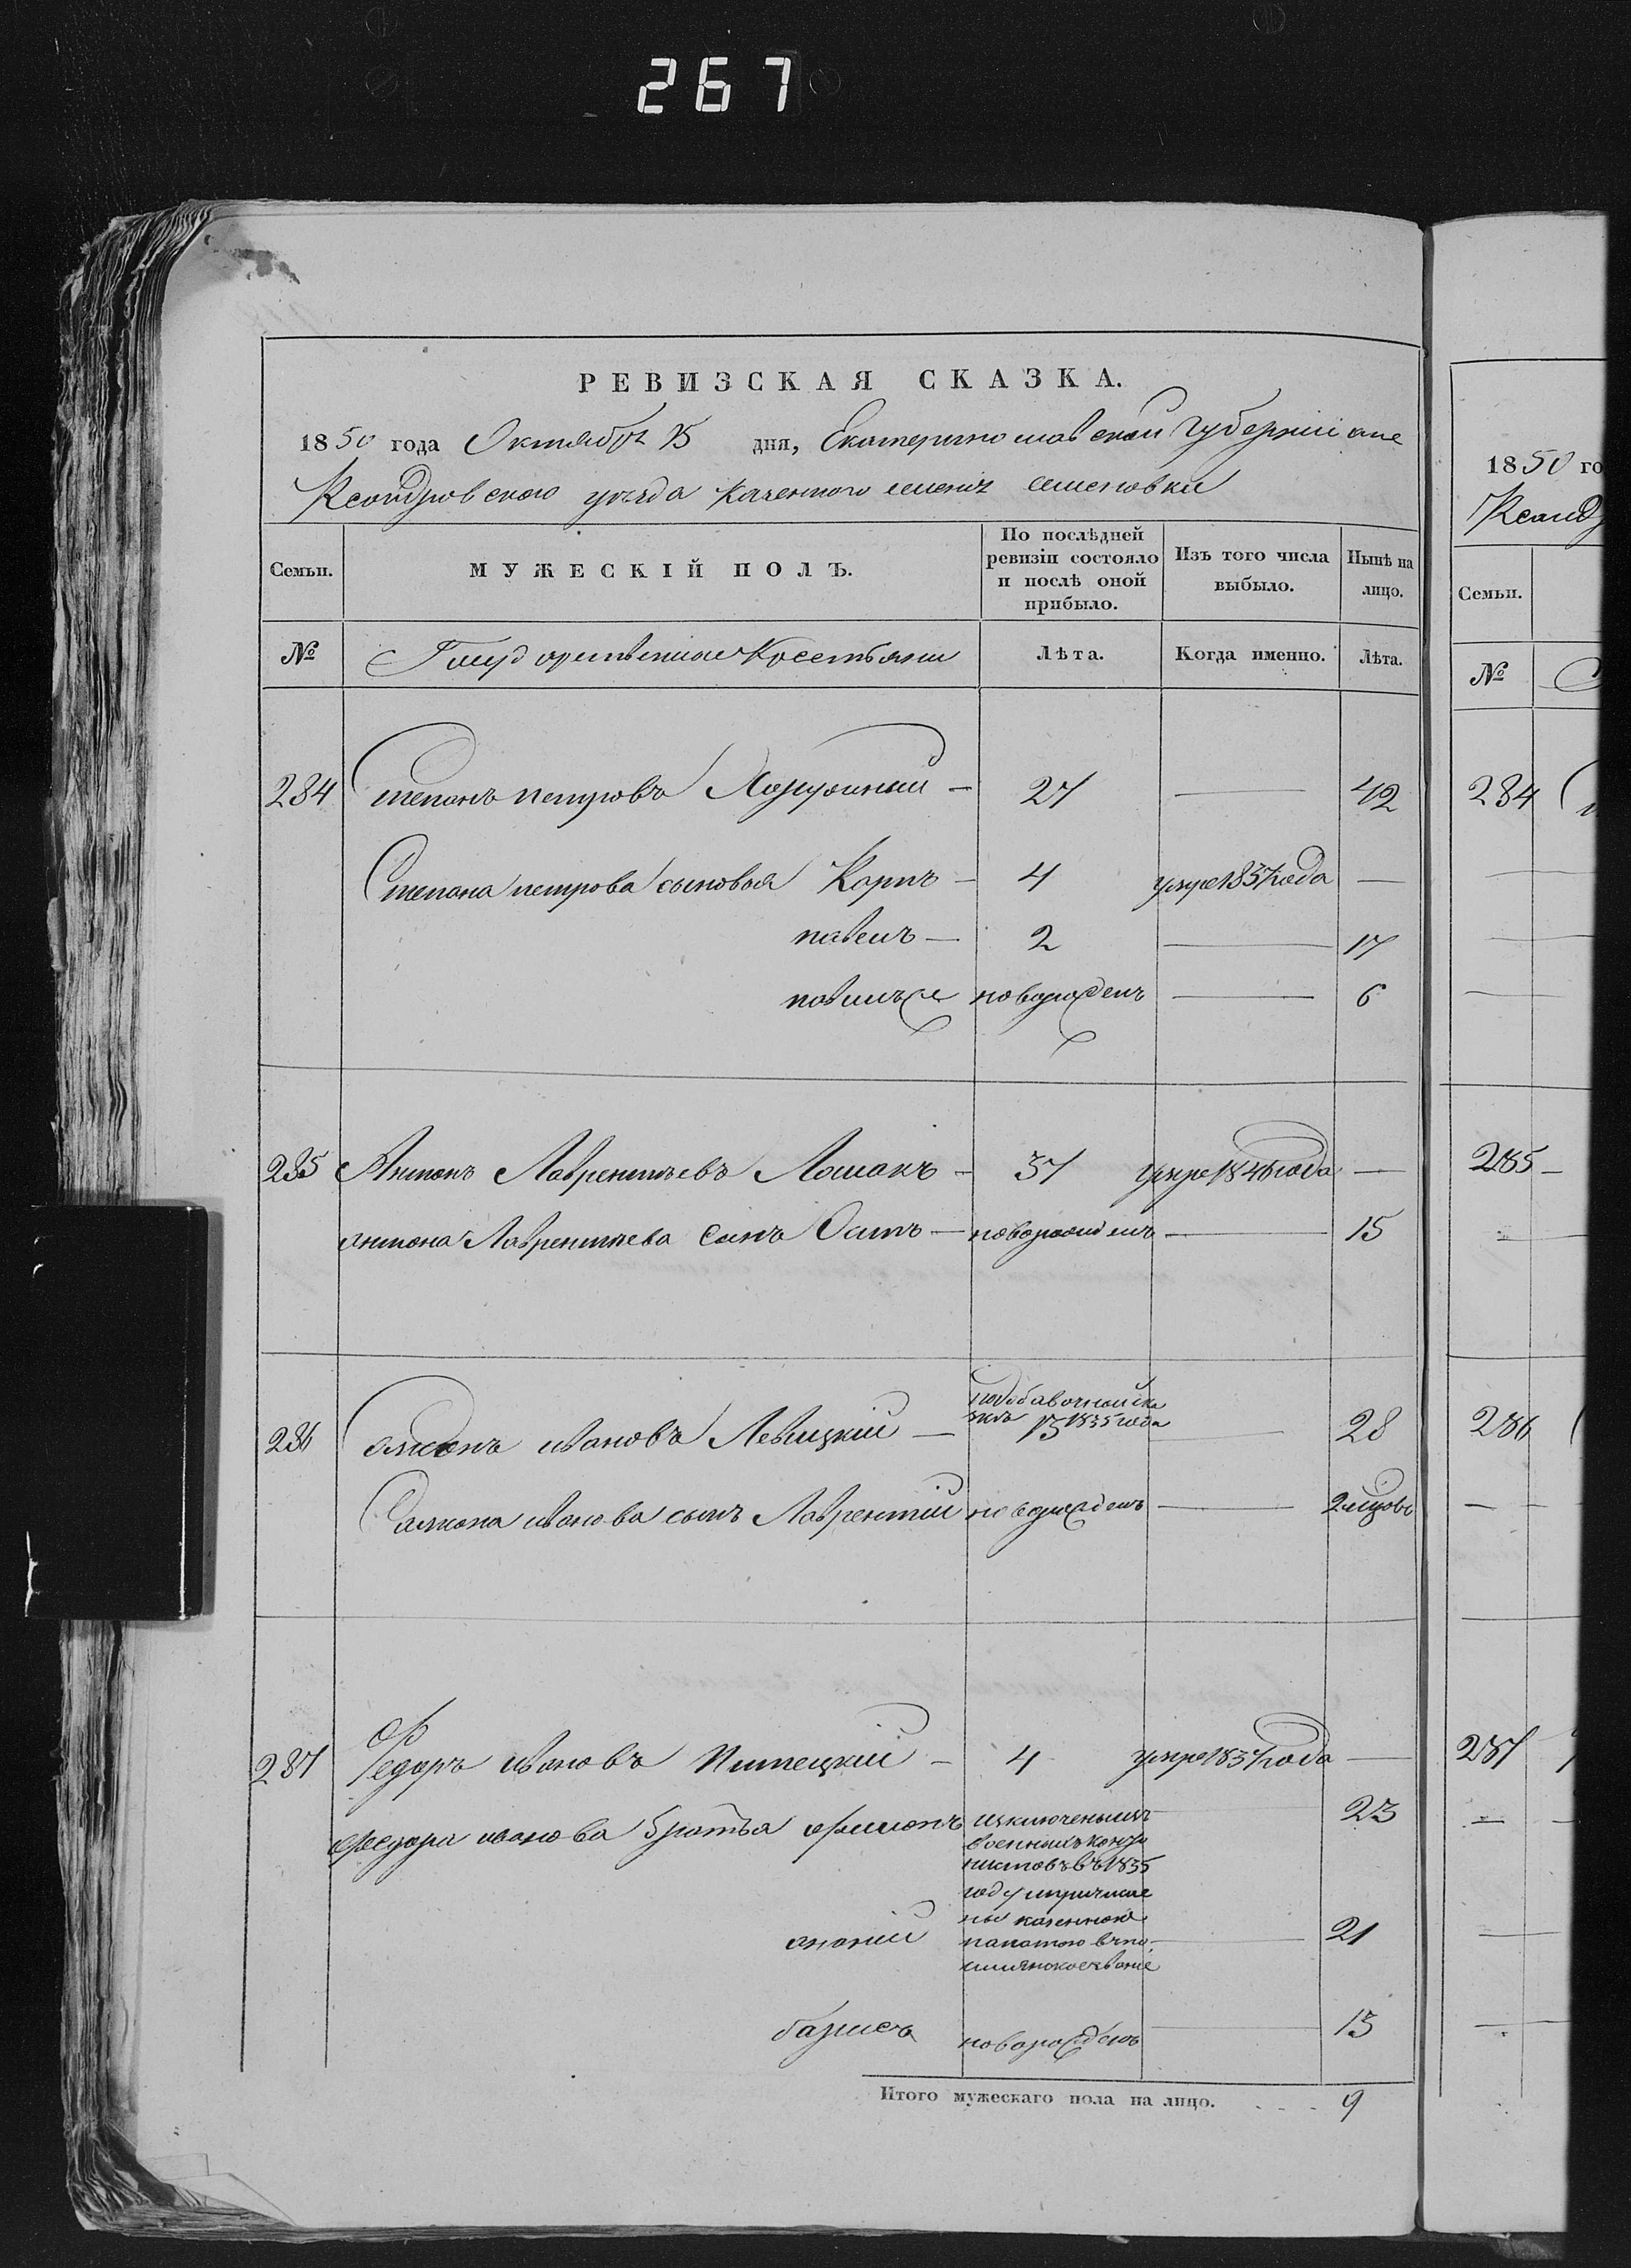 267
РЕВИЗСКАЯ СКАЗКА.
1850 года Октября 15 дня, Екатеринославской Губерніи але
Ксандровского уезда Казенного селенія семеновки
Семьи. МУЖЕСКІЙ ПОЛЪ. По послѣдней ревизіи состояло и послѣ оной прибыло. Изъ того числа выбыло. Нынѣ на лицо.
№ Государственные Крестьяни Лѣта. Когда именно. Лѣта.
284 Степанъ петровъ 27 — 42
Степана петрова сыновья Карпъ — 4 умре 1837 года —
павелъ — 2 — 17
павелъ 2й новорожденъ — 6
285 Антонъ Лаврентьевъ Лошакъ — 37 умре 1846 года —
антона Лаврентьева сынъ Осипъ — новорожденъ — 15
286 Самсонъ ивановъ Левицкій — по добавочной ска
зкѣ 1835 года
13 — 28
Самсона иванова сынъ Лаврентій новорожденъ — 2 мцовъ
287 Федоръ ивановъ Питецкій — 4 умре 1837 года —
Федора иванова братья филионъ изключены изъ 23
военныхъ канто
нистовъ въ 1835
году и причисле
ны казенною
ананій палатою въ по — 21
званіе
барисъ новорожденъ — 13
Итого мужескаго пола на лицо. 9
1850 го
Ксанд
Семьи.
№
284
285 —
286
287